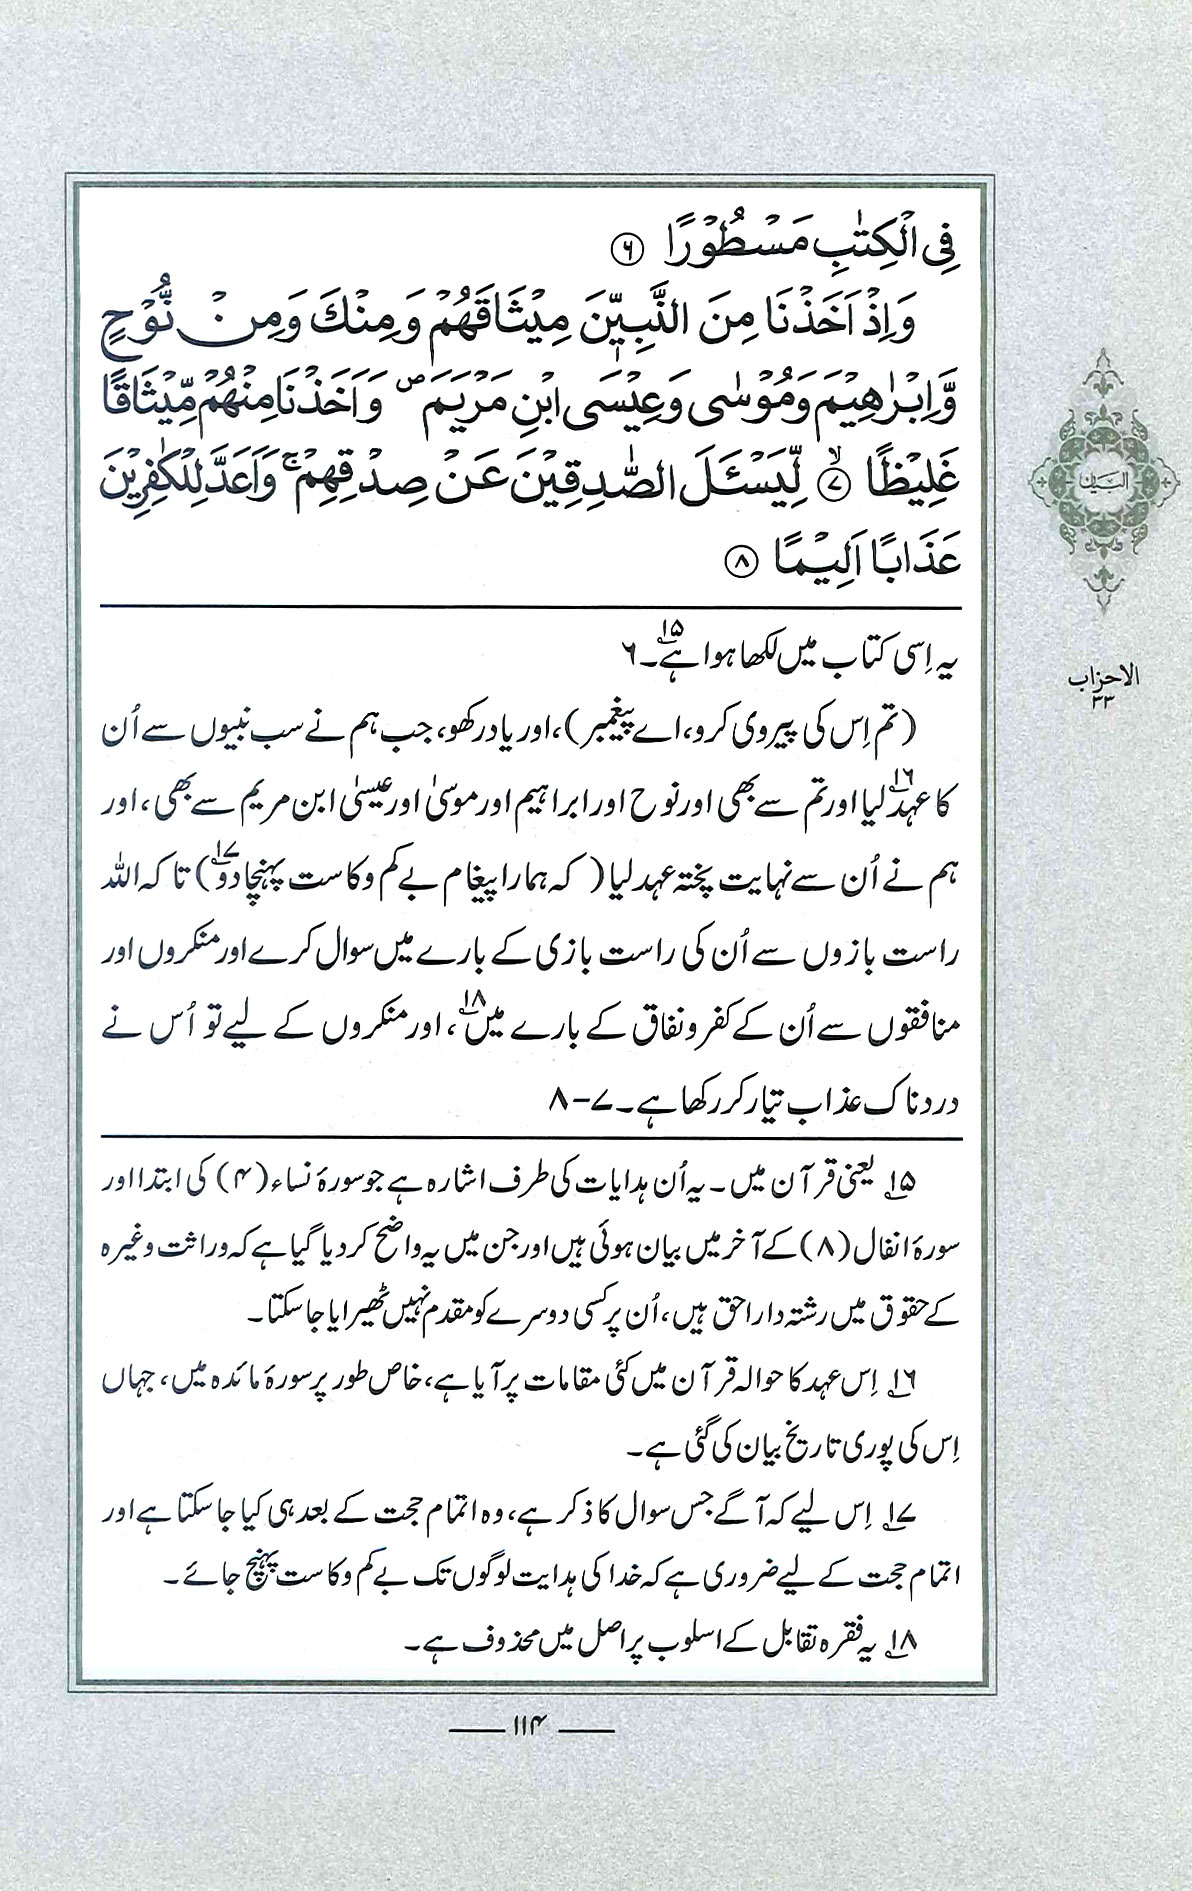 فِى الْكِتٰبِ مَسْطُوْرًا ﴿۶﴾
وَاِذْ اَخَذْنَا مِنَ النَّبِيّٖنَ مِيْثَاقَهُمْ وَمِنْكَ وَمِنْ نُّوْحٍ
وَّاِبْرٰهِيْمَ وَمُوْسٰى وَعِيْسَى ابْنِ مَرْيَمَ ۖ وَاَخَذْنَا مِنْهُمْ مِّيْثَاقًا
غَلِيْظًا ﴿۷﴾ۙ لِّيَسْـَٔلَ الصّٰدِقِيْنَ عَنْ صِدْقِهِمْ ۚ وَاَعَدَّ لِلْكٰفِرِيْنَ
عَذَابًا اَلِيْمًا ﴿۸﴾
یہ اِسی کتاب میں لکھا ہوا ہے۱۵۔ ۶
(تم اِس کی پیروی کرو، اے پیغمبر)، اور یاد رکھو، جب ہم نے سب نبیوں سے اُن
کا عہد۱۶ لیا اور تم سے بھی اور نوح اور ابراہیم اور موسیٰ اور عیسیٰ ابن مریم سے بھی، اور
ہم نے اُن سے نہایت پختہ عہد لیا (کہ ہمارا پیغام بے کم و کاست پہنچا دو۱۷) تاکہ اللہ
راست بازوں سے اُن کی راست بازی کے بارے میں سوال کرے اور منکروں اور
منافقوں سے اُن کے کفر و نفاق کے بارے میں۱۸، اور منکروں کے لیے تو اُس نے
دردناک عذاب تیار کر رکھا ہے۔ ۷-۸
۱۵ یعنی قرآن میں۔ یہ اُن ہدایات کی طرف اشارہ ہے جو سورۂ نساء (۴) کی ابتدا اور
سورۂ انفال (۸) کے آخر میں بیان ہوئی ہیں اور جن میں یہ واضح کر دیا گیا ہے کہ وراثت وغیرہ
کے حقوق میں رشتہ دار احق ہیں، اُن پر کسی دوسرے کو مقدم نہیں ٹھیرایا جا سکتا۔
۱۶ اِس عہد کا حوالہ قرآن میں کئی مقامات پر آیا ہے، خاص طور پر سورۂ مائدہ میں، جہاں
اِس کی پوری تاریخ بیان کی گئی ہے۔
۱۷ اِس لیے کہ آگے جس سوال کا ذکر ہے، وہ اتمام حجت کے بعد ہی کیا جا سکتا ہے اور
اتمام حجت کے لیے ضروری ہے کہ خدا کی ہدایت لوگوں تک بے کم و کاست پہنچ جائے۔
۱۸ یہ فقرہ تقابل کے اسلوب پر اصل میں محذوف ہے۔
۱۱۴
البیان
الاحزاب
۳۳